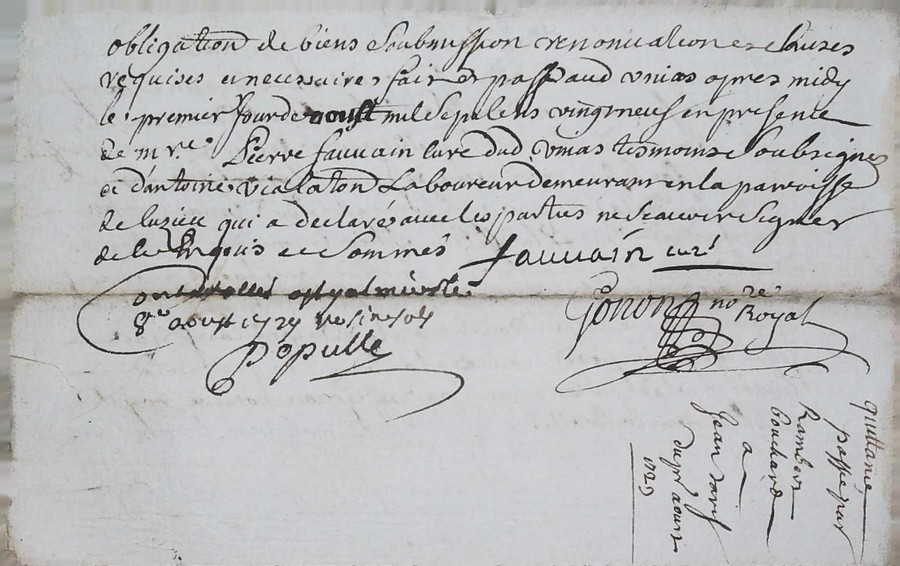 obligation de biens soubmission renonciation et clauses
requises et necessaires fait et passé aud unias apres midy
le premier jour de aoust mil sept cens vingt neuf en presence
de mr.e Pierre fauvain curé dud unias tesmoins soubsignes
et d'antoine vialaton Laboureur demeurant en la parroisse
de luzieu qui a declaré avec les parties ne scauoir signer
de ce enquis et sommés fauvain curé
Gonon no.re Royal
8.e aoust 1729
Populle
quittance
passé par
Rambert
bouchard
a
Jean
du pr aoust
1729